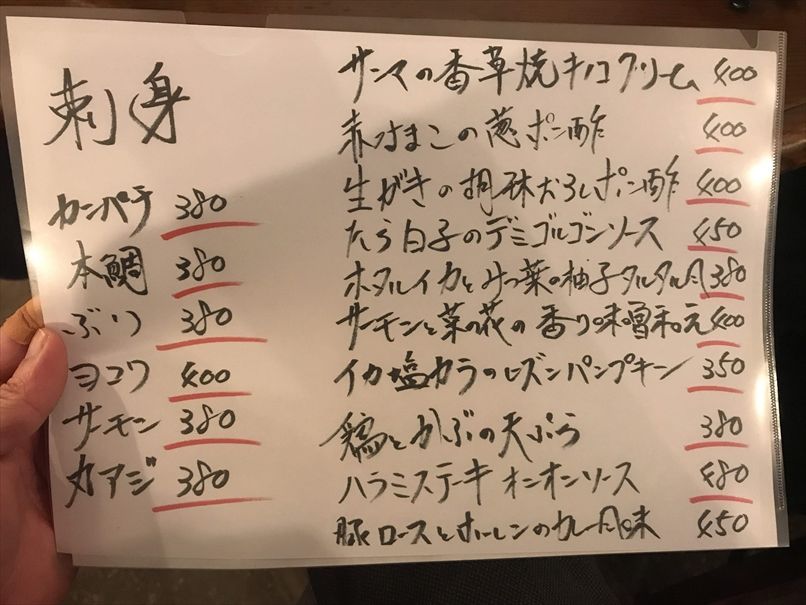 刺身
カンパチ 380
本鯛 380
ぶり 380
ヨコワ 400
サーモン 380
丸アジ 380
サンマの香草焼キノコクリーム 400
赤なまこの葱ポン酢 400
生がきの胡麻おろしポン酢 400
たら白子のデミゴルゴンソース 450
ホタルイカとみつ葉の柚子タルタル風 380
サーモンと菜の花の香り味噌和え 400
イカ塩カラのレーズンパンプキン 350
鶏とかぶの天ぷら 380
ハラミステーキ オニオンソース 480
豚ロースとホーレンのカレー風味 450